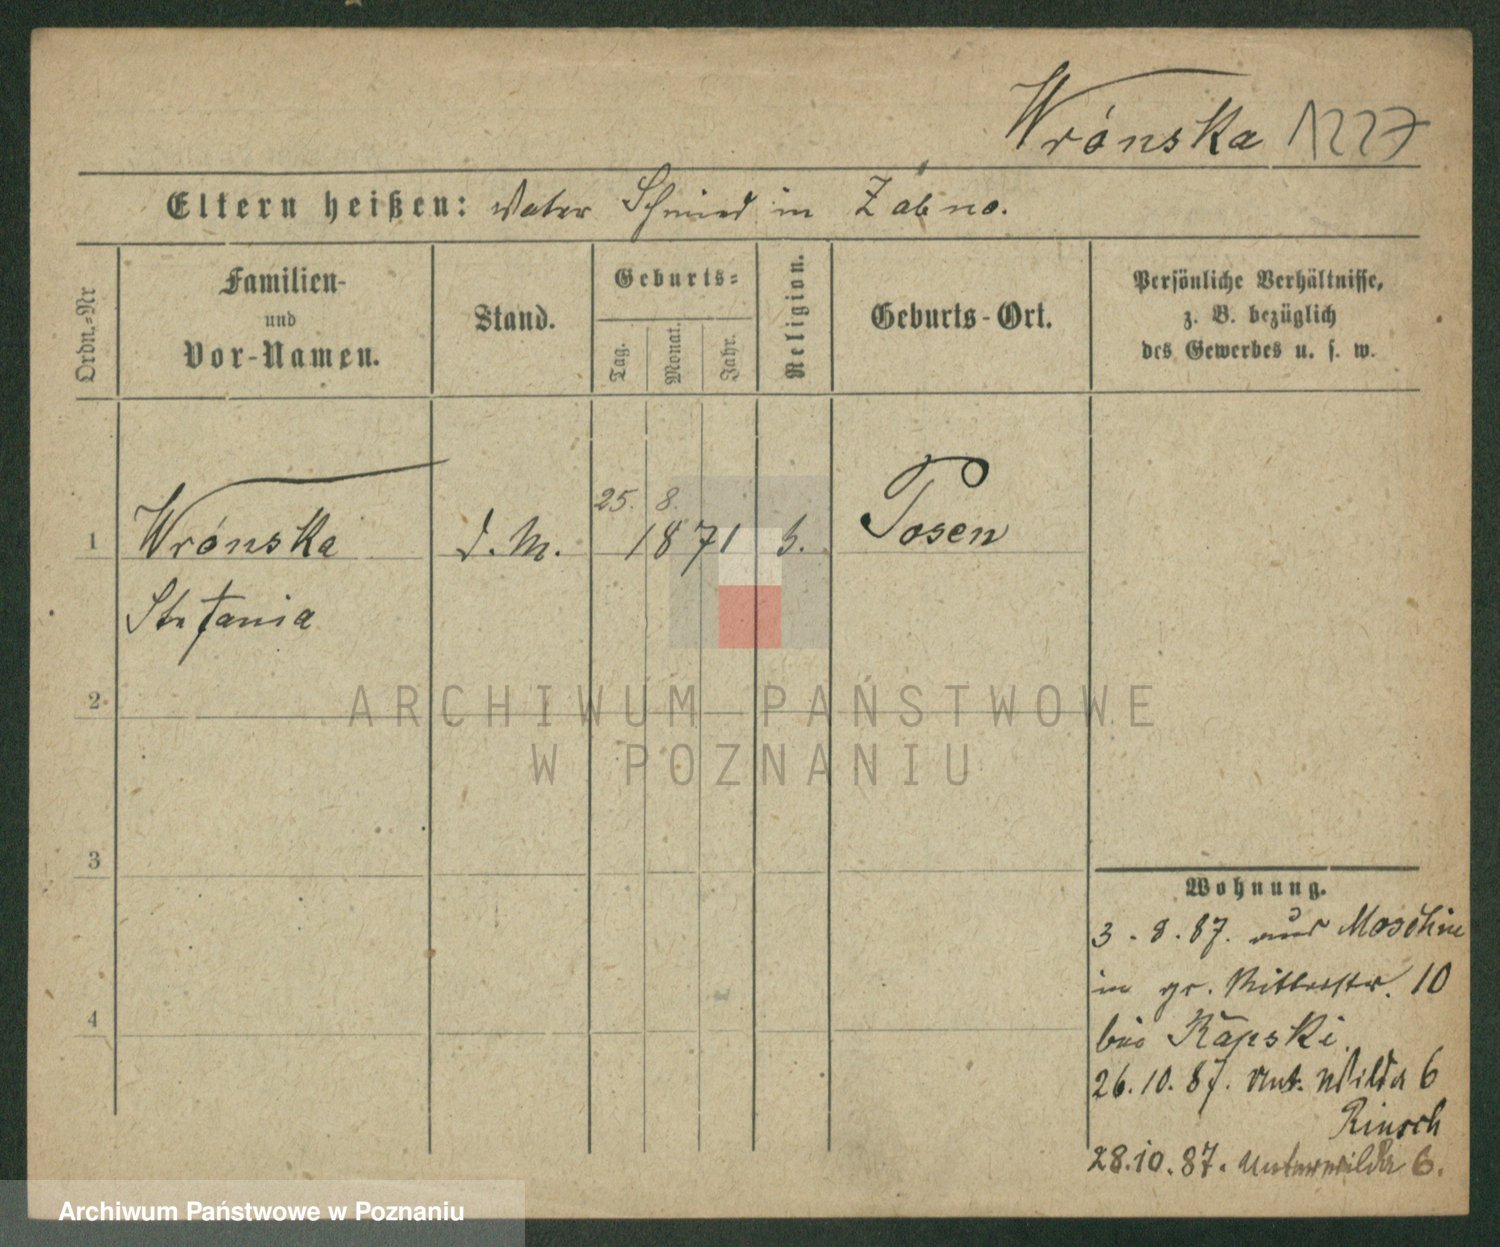 Wrónska 1227
Eltern heißen: Vater Schmied in Zabno.
Ordn.-Nr
Familien-
und
Vor-Namen.
Stand.
Geburts-
Tag.
Monat.
Jahr.
Religion.
Geburts-Ort.
Persönliche Verhältnisse,
z. B. bezüglich
des Gewerbes u. s. w.
25. 8.
1 Wrónska d. M. 1871 k. Posen
Stefania
2
ARCHIWUM PAŃSTWOWE
W POZNANIU
3
Wohnung.
3.8.87. aus Moschin
in gr. Ritterstr. 10
bei Rąpski.
4
26.10.87. Unt. Wilda 6
Rinsch
28.10.87. Unterwilda 6.
Archiwum Państwowe w Poznaniu